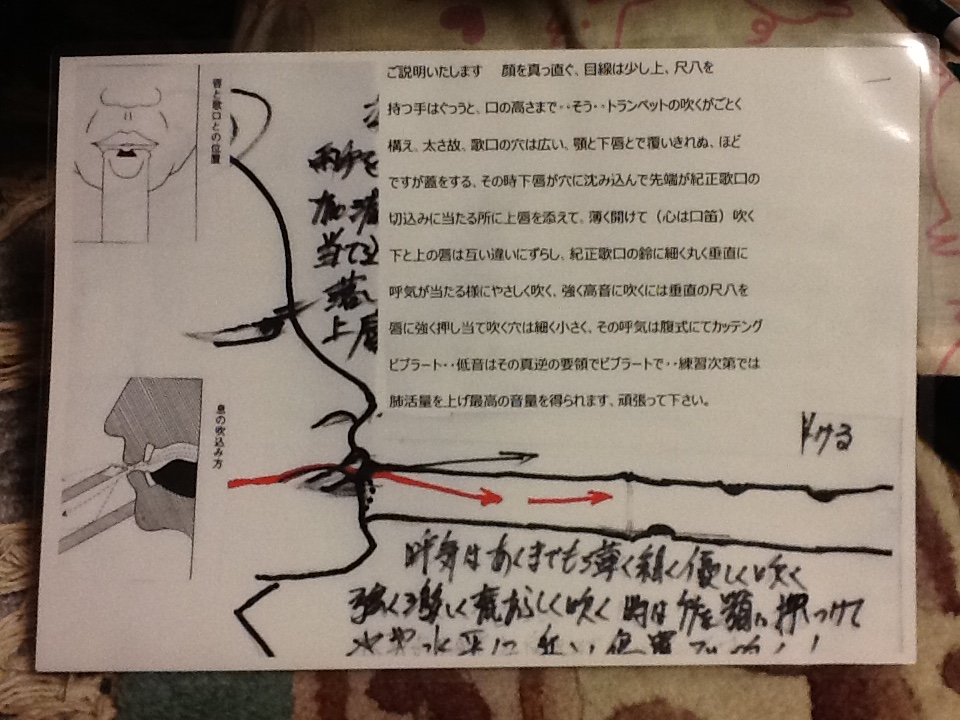 唇と歌口との位置
ご説明いたします　顔を真っ直ぐ、目線は少し上、尺八を
持つ手はぐうっと、口の高さまで‥そう‥トランペットの吹くがごとく
構え、太さ故、歌口の穴は広い、顎と下唇とで覆いきれぬ、ほど
ですが蓋をする、その時下唇が穴に沈み込んで先端が紀正歌口の
切込みに当たる所に上唇を添えて、薄く開けて（心は口笛）吹く
下と上の唇は互い違いにずらし、紀正歌口の鈴に細く丸く垂直に
呼気が当たる様にやさしく吹く、強く高音に吹くには垂直の尺八を
唇に強く押し当て吹く穴は細く小さく、その呼気は腹式にてカッテング
ビブラート‥低音はその真逆の要領でビブラートで‥練習次第では
肺活量を上げ最高の音量を得られます、頑張って下さい。
両手を
当てる
上唇
息の吹込み方
ける
呼気はあくまでも薄く細く優しく吹く
強く激しく荒々しく吹く時は顎に押つけて